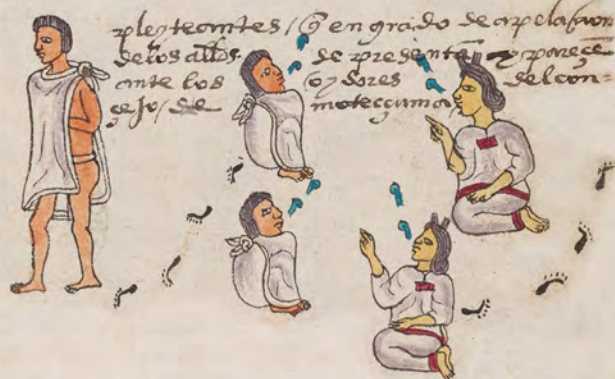 pleyteantes / q en grado de apelaçion
de los alldes. de presenta y pareçe
ante los oydores del con-
çejo / de moteccuma /